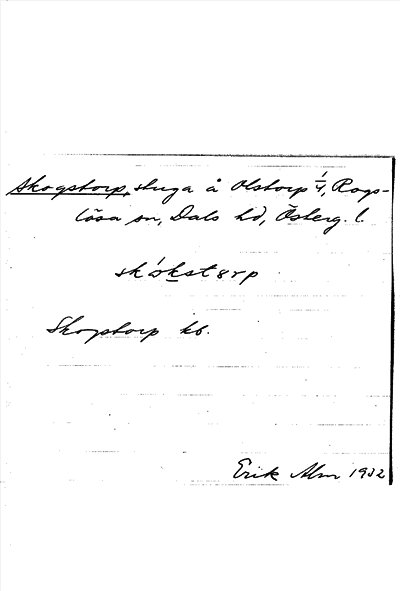 Skogstorp, stuga å Olstorp 1/4, Rogs-
lösa sn, Dals hd, Österg. l.
sk´okst8rp
Skogstorp kb.
Erik Alm 1932